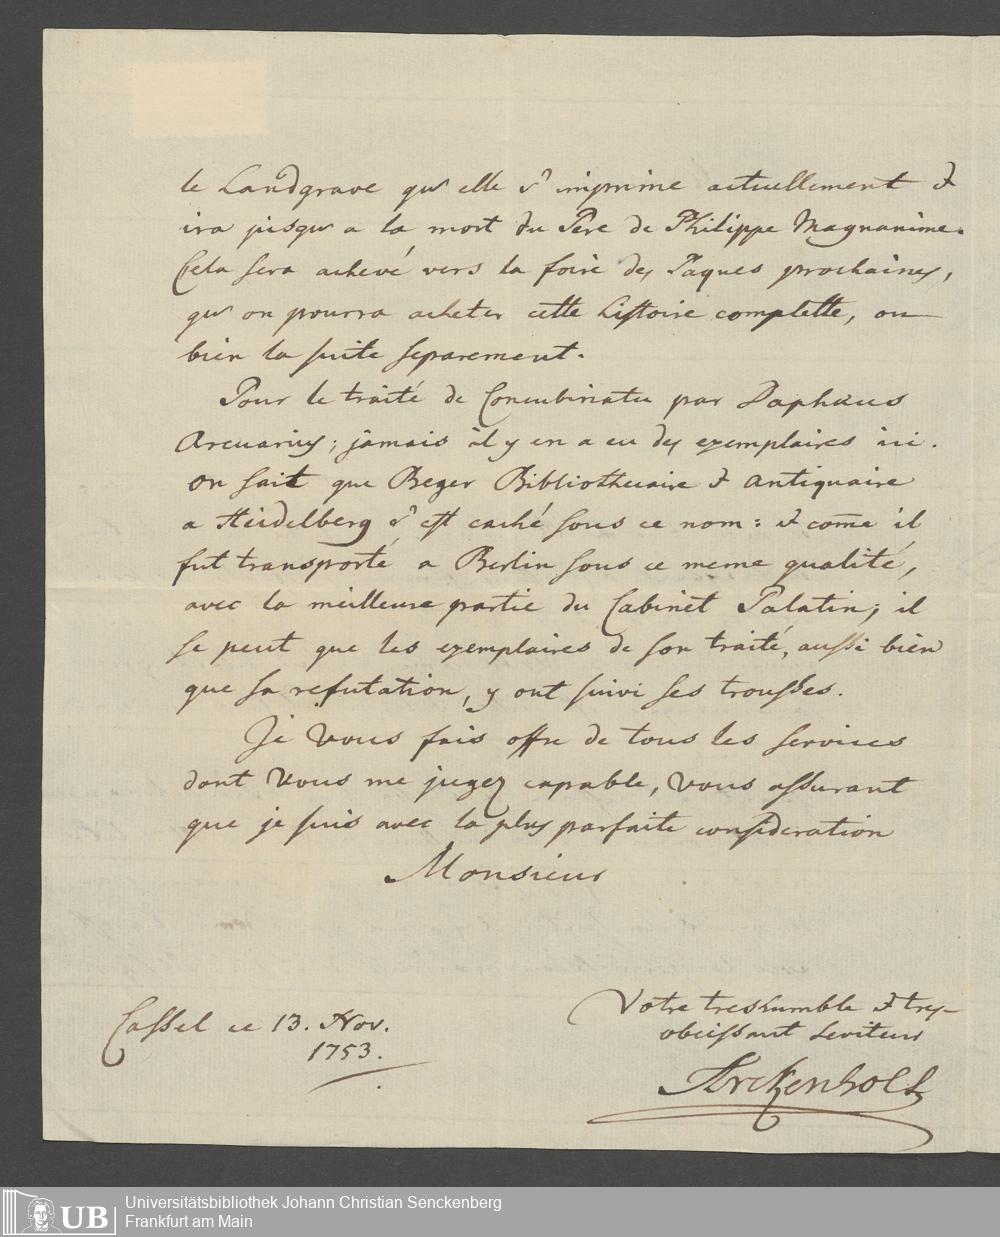 le Landgrave qu' elle s' imprime actuellement &
ira jusqu a la mort du Pere de Philippe Magnanime.
Cela sera achevé vers la foire des Paques prochaines,
qu' on pourra acheter cette histoire complette, ou
bien la suite separement.
Pour le traité de Concubinatu par Daphæus
Arcuarius; jamais il y en a eu des exemplaires ici.
on sait que Beger Bibliothecaire & antiquaire
a Heidelberg s' est caché sous ce nom: & com̄e il
fut transporté a Berlin sous ce meme qualité,
avec la meilleure partie du Cabinet Palatin; il
se peut que les exemplaires de son traité, aussi bien
que sa refutation, y ont suivi ses trousses.
Je Vous fais offre de tous les services
dont Vous me jugez capable, Vous assurant
que je suis avec la plus parfaite consideration
Monsieur
Votre treshumble & tres-
obeissant serviteur
Arckenholtz
Cassel ce 13. Nov.
1753.
UB
Universitätsbibliothek Johann Christian Senckenberg
Frankfurt am Main